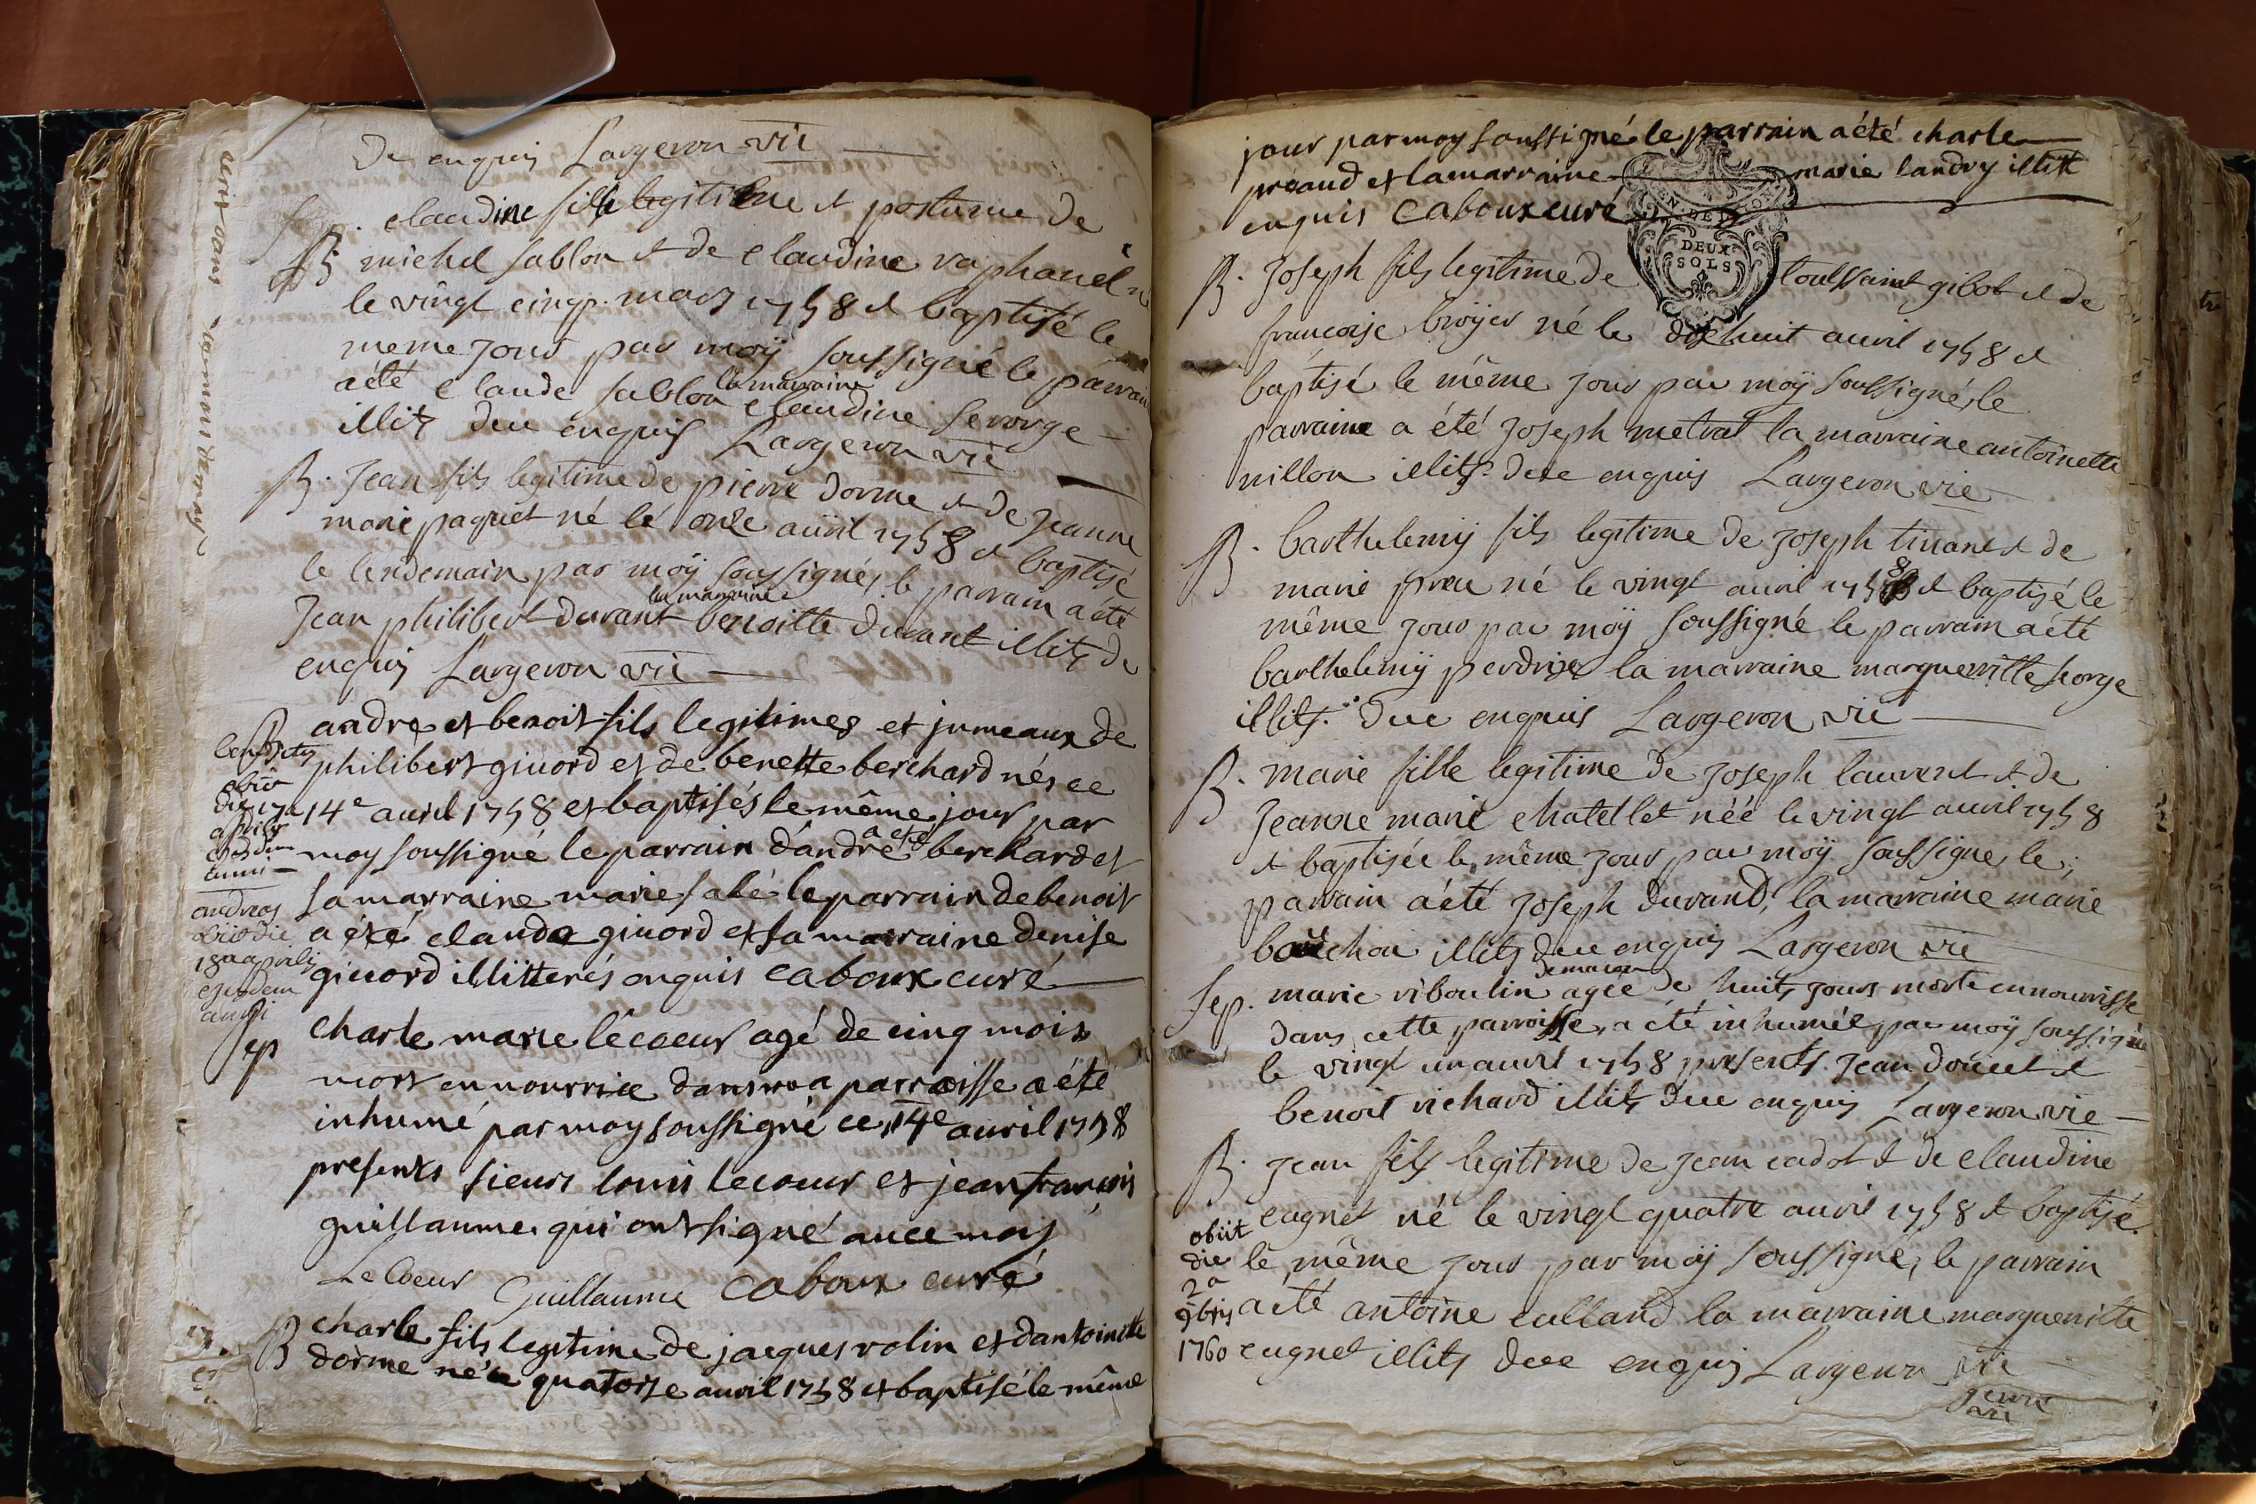 De enquis Largeron vic
B. claudine fille legitime et postume de
michel sablon et de claudine raphanel n
le vingt cinq. mars 1758 et baptisé le
meme jour par moÿ soussigné le parrain
a été claude sablon la marraine claudine ferorge
illitz due enquis Largeron vic
B. Jean fils legitime de pierre dorme et de jeanne
marie paquet né le onze auril 1758 et baptisé
le lendemain par moÿ soussigné, le parrain a été
Jean philibert durant la marraine benoitte durant illitz de
enquis Largeron vic
B andre et benoit fils legitimes et jumeaux de
philibert giuord et de benette berchard nés ce
14e auril 1758 et baptisés le même jour par
moy soussigné le parrain d'andré a eté berchard et
sa marraine marie sabé le parrain de benoit
a été claude giuord et sa marraine denise
giuord illitterés enquis caboux curé
obiit
die 17a
aprilis
ejusdem
anni
andreas
obiit die
18a aprilis
ejusdem
anni
Sep
charle marie lécoeur agé de cinq mois
mort en nourrice dans ma parroisse a été
inhumé par moy soussigné ce 14e auril 1758
presents sieurs louis lecoeur et jean francois
guillaume qui ont signé auec moy
Le Coeur Guillaume caboux curé
B charle fils legitime de jacques rolin et d'antoinette
dorme né le quatorze auril 1758 et baptisé le même
jour par moy soussigné le parrain a été charle
preaud et la marraine marie landry illitt
enquis caboux curé
DEUX
SOLS
B. Joseph fils legitime de toussaint gibot et de
francoise broÿer né le dix huit auril 1758 et
baptisé le même jour par moÿ soussigné, le
parraine a été Joseph metrat la marraine antoinette
nillon illitz. due enquis Largeron vic
B. barthelemÿ fils legitime de joseph tiuant et de
marie preu né le vingt auril 1758 et baptisé le
même jour par moÿ soussigné le parrain a été
barthelemÿ perdrix la marraine marguerritte ferorge
illitz. due enquis Largeron vic
B. marie fille legitime de joseph laurent et de
jeanne marie chatellet néé le vingt auril 1758
et baptisée le même jour par moÿ soussigné, le
parrain a été joseph durand, la marraine marie
bouchou illitz due enquis Largeron vic
Sep. marie riboulin de macon agée de huit jours morte en nourrisse
dans cette parroisse, a été inhumée par moÿ soussigné
le vingt un auril 1758 presents. Jean doucet et
benoit richard illitz due enquis Largeron vic
B. jean fils legitime de jean cadot et de claudine
cugnet né le vingt quatre auril 1758 et baptisé
le même jour par moÿ soussigné, le parrain
a été antoine culland la marraine marguerritte
cugnet illitz due enquis Largeron vic
obiit
die
2a
9bris
1760